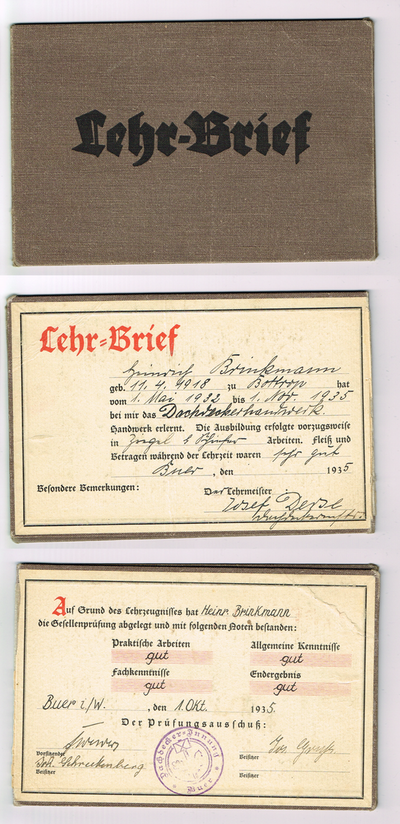 Lehr-Brief
Lehr-Brief
Heinrich Brinkmann
geb. 11.4.1918 zu Bottrop hat
vom 1. Mai 1932 bis 1. Nov. 1935
bei mir das Dachdeckerhandwerk
Handwerk erlernt. Die Ausbildung erfolgte vorzugsweise
in Ziegel & Schiefer Arbeiten. Fleiß und
Betragen während der Lehrzeit waren sehr gut
Buer, den 1935
Besondere Bemerkungen: Der Lehrmeister
Josef
Auf Grund des Lehrzeugnisses hat Heinr. Brinkmann
die Gesellenprüfung abgelegt und mit folgenden Noten bestanden:
Praktische Arbeiten Allgemeine Kenntnisse
gut gut
Fachkenntnisse Endergebnis
gut gut
Buer i/W. , den 1. Okt. 1935.
Der Prüfungsausschuß:
Vorsitzender
Joh. Schreckenberg Jos.
Beisitzer Beisitzer
Beisitzer
Dachdecker-Innung
Buer